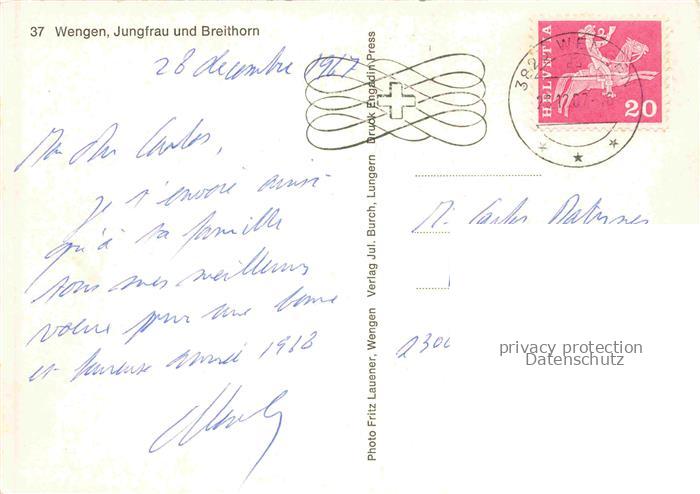 37 Wengen, Jungfrau und Breithorn
28 decembre 1967
Mon cher Carlos,
Je t'envoie ainsi
qu'à ta famille
tous mes meilleurs
voeux pour une bonne
et heureuse année 1968
Photo Fritz Lauener, Wengen Verlag Jul. Burch, Lungern Druck Engadin Press
HELVETIA
20
382
WE
M. Carlos
2300
privacy protection
Datenschutz